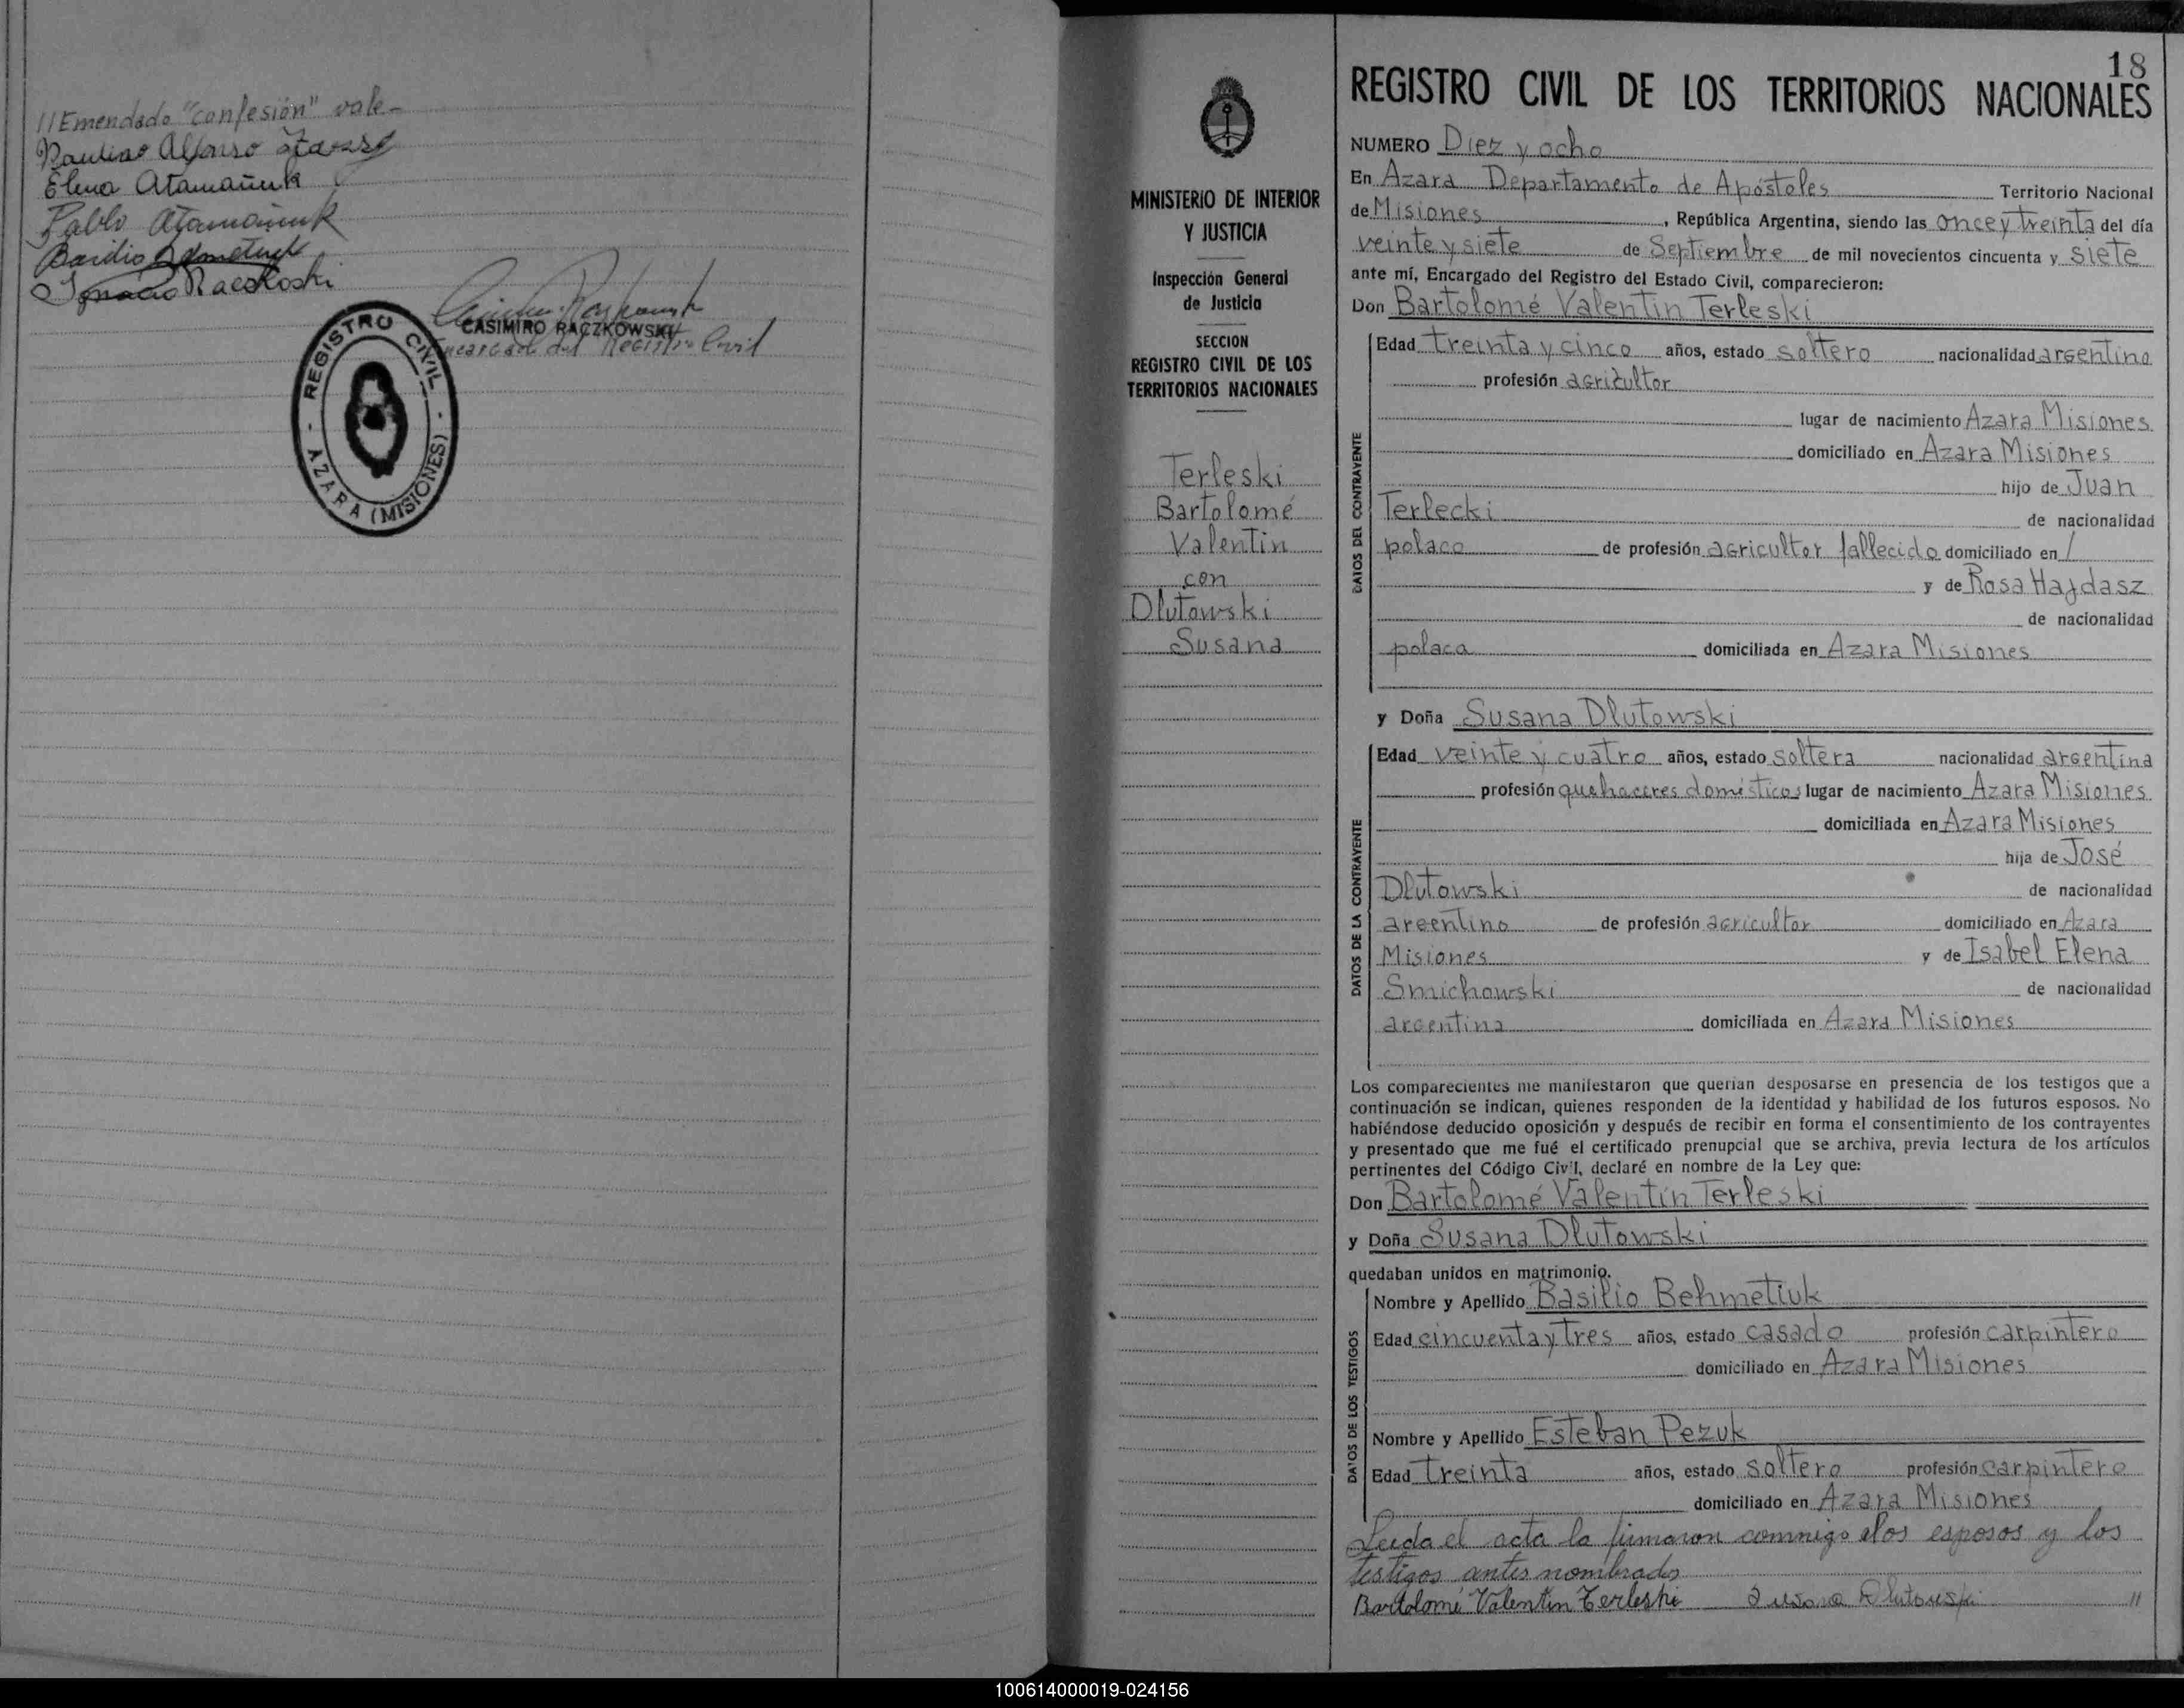 //Emendado "confesión" vale-
Paulino Alfonso
Elena Atamañuk
Pablo Atamañuk
Basilio
Ignacio Raczkoski
CASIMIRO RACZKOWSKI
Encargado del Registro Civil
- REGISTRO CIVIL -
AZARA (MISIONES)
MINISTERIO DE INTERIOR
Y JUSTICIA
Inspección General
de Justicia
SECCION
REGISTRO CIVIL DE LOS
TERRITORIOS NACIONALES
Terleski
Bartolomé
Valentin
con
Dlutowski
Susana
18
REGISTRO CIVIL DE LOS TERRITORIOS NACIONALES
NUMERO Diez y ocho
En Azara Departamento de Apóstoles Territorio Nacional
de Misiones, República Argentina, siendo las once y treinta del día
veinte y siete de Septiembre de mil novecientos cincuenta y siete
ante mí, Encargado del Registro del Estado Civil, comparecieron:
Don Bartolomé Valentin Terleski
DATOS DEL CONTRAYENTE
Edad treinta y cinco años, estado soltero nacionalidad argentina
profesión agricultor
lugar de nacimiento Azara Misiones
domiciliado en Azara Misiones
hijo de Juan
Terlecki de nacionalidad
polaco de profesión agricultor fallecido domiciliado en /
y de Rosa Hajdasz
de nacionalidad
polaca domiciliada en Azara Misiones
y Doña Susana Dlutowski
DATOS DE LA CONTRAYENTE
Edad veinte y cuatro años, estado soltera nacionalidad argentina
profesión quehaceres domésticos lugar de nacimiento Azara Misiones
domiciliada en Azara Misiones
hija de José
Dlutowski de nacionalidad
argentino de profesión agricultor domiciliado en Azara
Misiones y de Isabel Elena
Smichowski de nacionalidad
argentina domiciliada en Azara Misiones
Los comparecientes me manifestaron que querían desposarse en presencia de los testigos que a
continuación se indican, quienes responden de la identidad y habilidad de los futuros esposos. No
habiéndose deducido oposición y después de recibir en forma el consentimiento de los contrayentes
y presentado que me fué el certificado prenupcial que se archiva, previa lectura de los artículos
pertinentes del Código Civil, declaré en nombre de la Ley que:
Don Bartolomé Valentín Terleski
y Doña Susana Dlutowski
quedaban unidos en matrimonio.
DATOS DE LOS TESTIGOS
Nombre y Apellido Basilio Behmetiuk
Edad cincuenta y tres años, estado casado profesión carpintero
domiciliado en Azara Misiones
Nombre y Apellido Esteban Pezuk
Edad treinta años, estado soltero profesión carpintero
domiciliado en Azara Misiones
Leida el acta la firmaron conmigo los esposos y los
testigos antes nombrados
Bartolomé Valentín Terleski Susana Dlutouski //
100614000019-024156